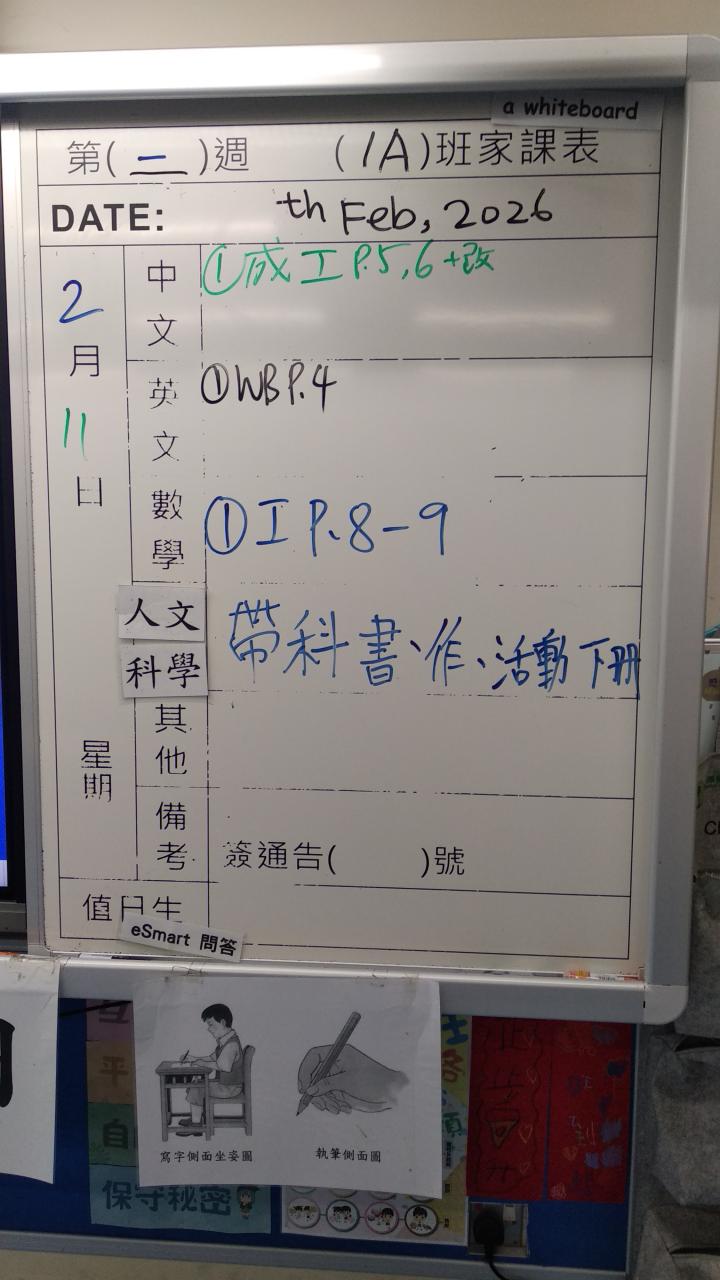 a whiteboard
第(一)週 (1A)班家課表
DATE: th Feb, 2026
2月11日
星期
中文 ①成工P.5,6+改
英文 ①WB P.4
數學 ①工P.8-9
人文科學 帶科書、作、活動下冊
其他
備考 簽通告( )號
值日生
eSmart 問答
寫字側面坐姿圖
執筆側面圖
保守秘密